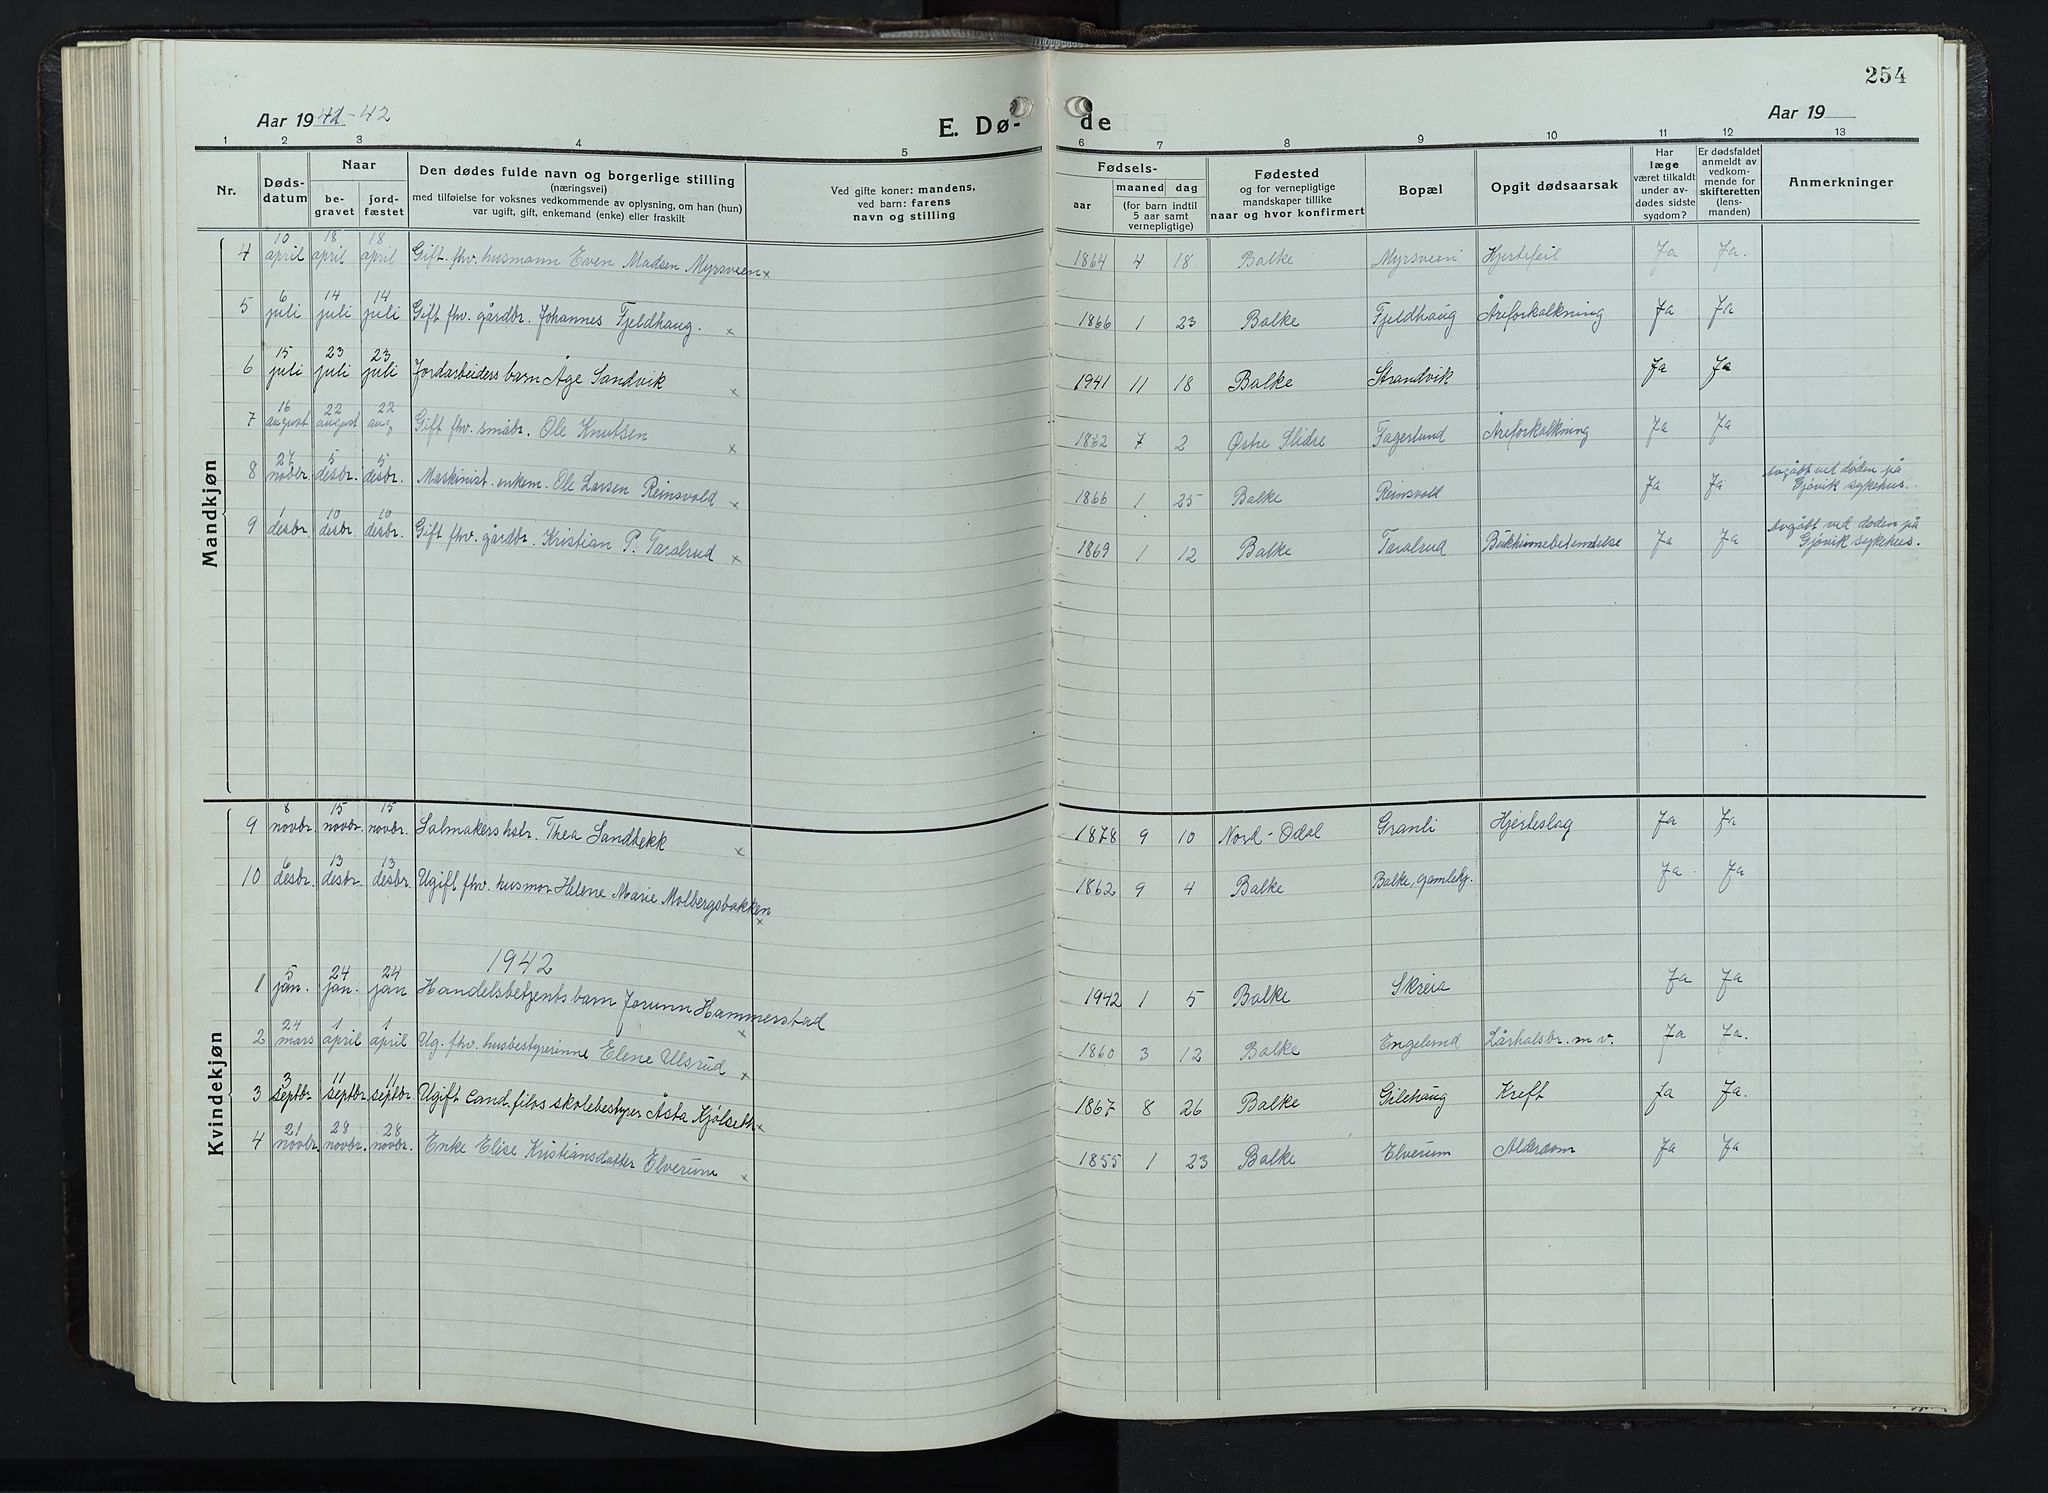 254
Aar 1941-42
E. Dø-
de
Aar 19
1 2 3 4 5 6 7 8 9 10 11 12 13
Nr.
Døds-
datum
Naar
be-
gravet
jord-
fæstet
Den dødes fulde navn og borgerlige stilling
(næringsvei)
med tilføielse for voksnes vedkommende av oplysning, om han (hun)
var ugift, gift, enkemand (enke) eller fraskilt
Ved gifte koner: mandens,
ved barn: farens
navn og stilling
Fødsels-
aar
maaned
dag
(for barn indtil
5 aar samt
vernepligtige)
Fødested
og for vernepligtige
mandskaper tillike
naar og hvor konfirmert
Bopæl
Opgit dødsaarsak
Har
læge
været tilkaldt
under av-
dødes sidste
sygdom?
Er dødsfaldet
anmeldt av
vedkom-
mende for
skifteretten
(lens-
manden)
Anmerkninger
Mandkjøn
4 10 april 18 april 18 april Gift. fhv. husmann Even Madsen Myrsveen x 1864 4 18 Balke Myrsveen Hjertefeil Ja Ja.
5 6 juli 14 juli 14 juli Gift fhv. gårdbr. Johannes Fjeldhaug. x 1866 1 23 Balke Fjeldhaug Åreforkalkning Ja Ja
6 15 juli 23 juli 23 juli Jordarbeiders barn Åge Sandvik x 1941 11 18 Balke Strandvik Ja Ja
7 16 august 22 august 22 aug. Gift fhv. småbr. Ole Knutsen x 1862 7 2 Østre Slidre Fagerlund Åreforkalkning Ja Ja
8 27 novbr. 5 desbr. 5 desbr. Maskinist. enkem. Ole Larsen Reinsvold x 1866 1 25 Balke Reinsvold Ja Ja Avgått ved døden på
Gjøvik sykehus.
9 1 desbr. 10 desbr. 10 desbr. Gift fhv. gårdbr. Kristian P. Taralrud x 1869 1 12 Balke Taralrud Bukhinnebetennelse Ja Ja Avgått ved døden på
Gjøvik sykehus.
Kvindekjøn
9 8 novbr. 15 novbr. 15 novbr. Salmakers hstr. Thea Sandbekk x 1878 9 10 Nord-Odal Granli Hjerteslag Ja Ja
10 6 desbr. 13 desbr. 13 desbr. Ugift fhv. husmor Helene Marie Molbergsbakken x 1862 9 4 Balke Balke, gamlehj. Ja Ja
1942
1 5 jan. 24 jan. 24 jan Handelsbetjents barn Jorunn Hammerstad x 1942 1 5 Balke Skreia Ja Ja
2 24 mars 1 april 1 april Ug. fhv. husbestyrerinne Elene Ulsrud x 1860 3 12 Balke Engelund Lårhalsbr. m. v. Ja Ja.
3 3 septbr. 11 septbr. 11 septbr. Ugift Cand. filos skolebestyrer Åsta Kjølseth x 1867 8 26 Balke Gilehaug Kreft Ja Ja.
4 21 novbr. 28 novbr. 28 novbr. Enke Elise Kristiansdatter Elverum x 1855 1 23 Balke Elverum Alderdom Ja Ja